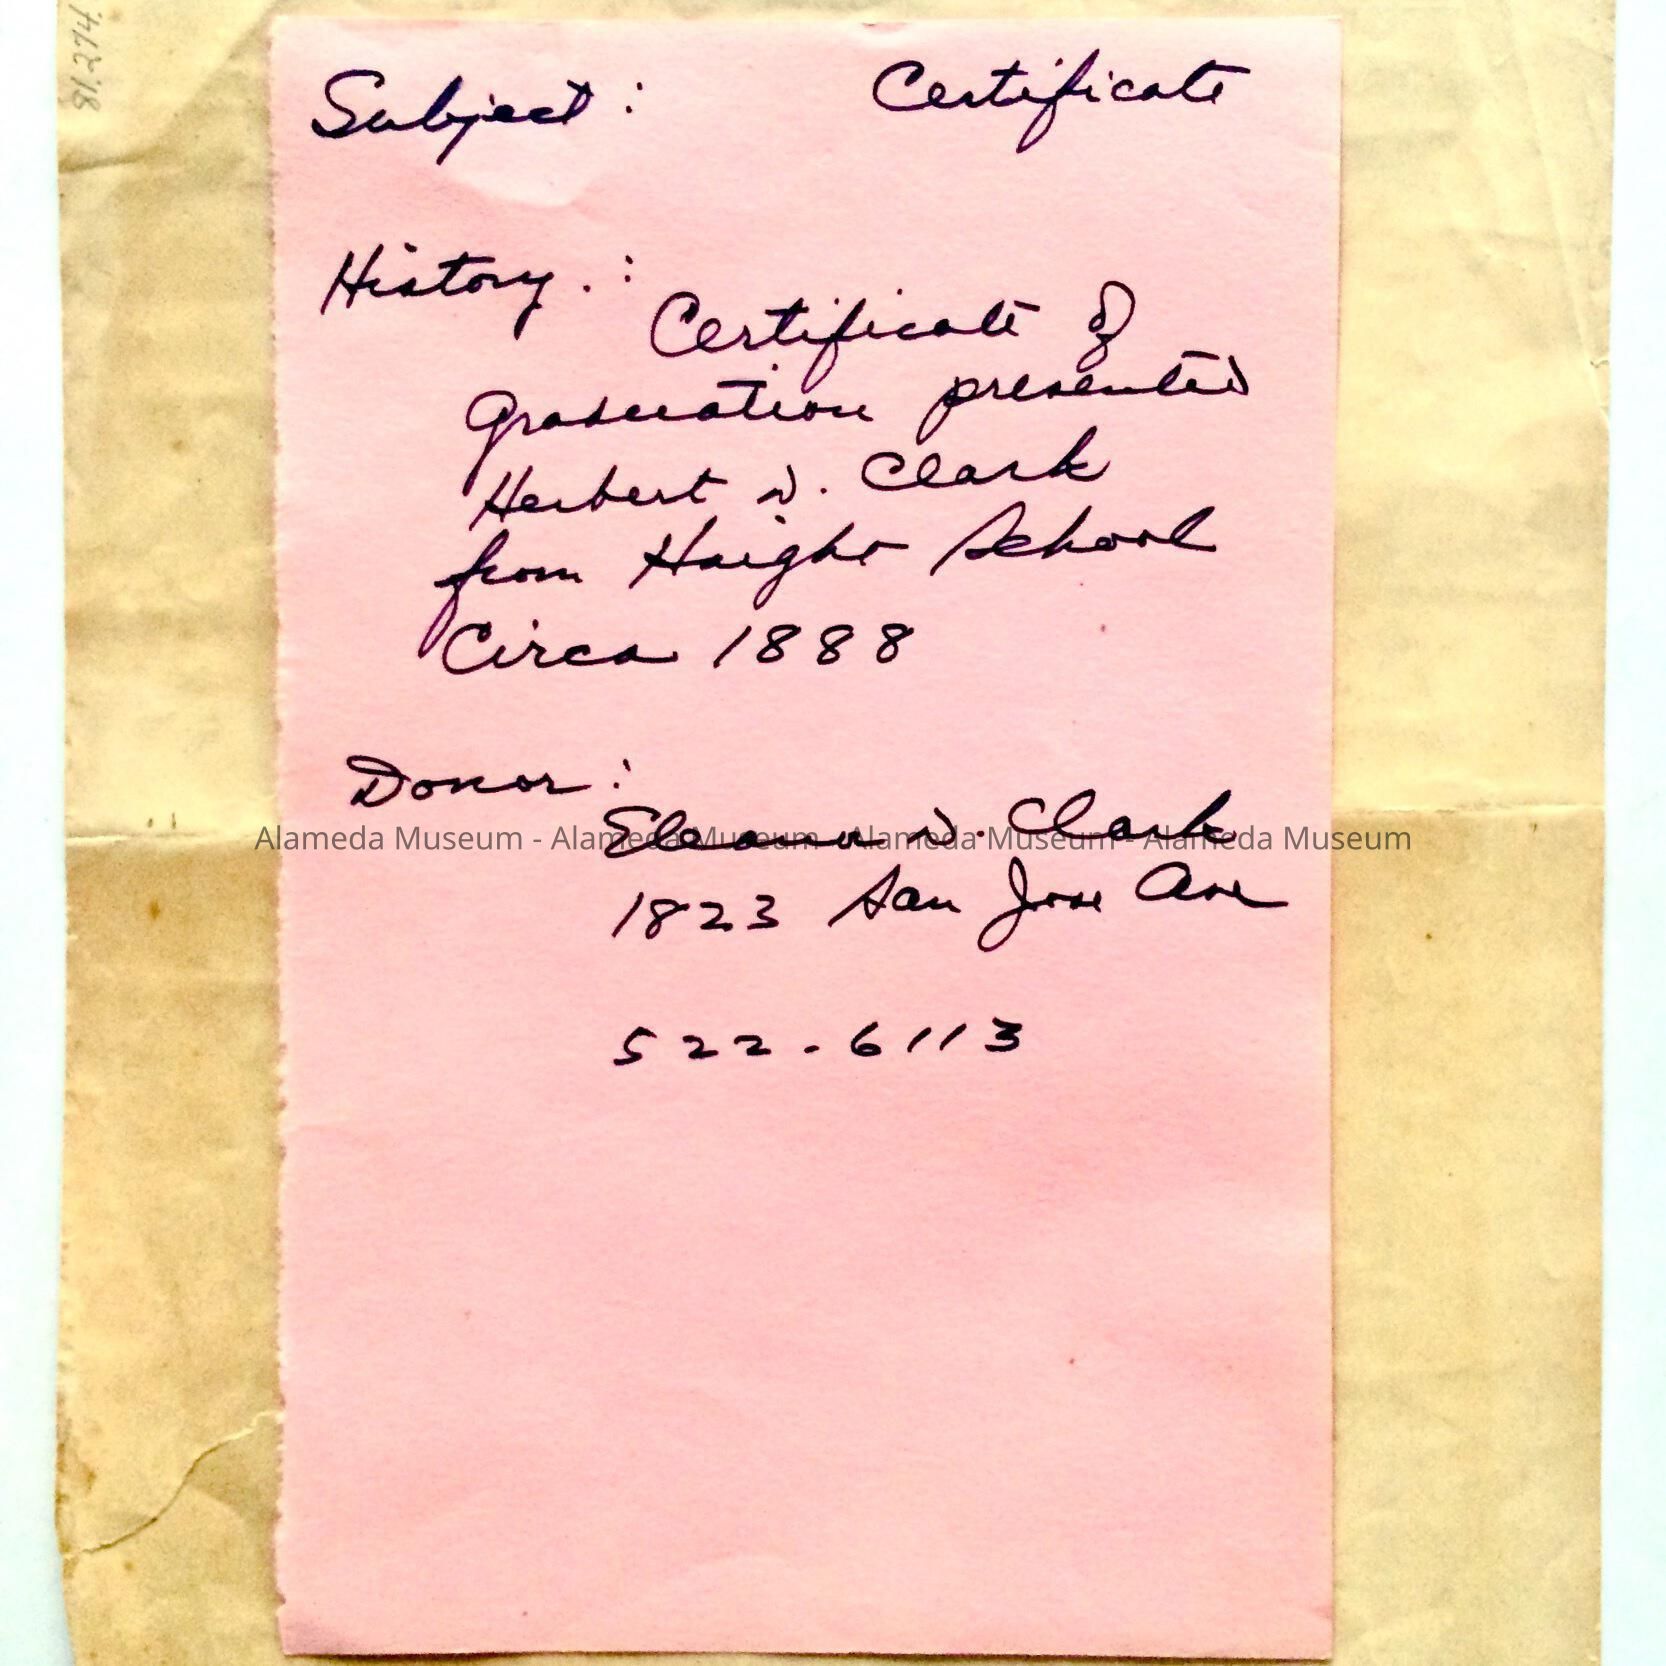 81.274.
Subject : Certificate
History. :
Certificate of
Graduation presented
Herbert D. Clark
from Haight School
Circa 1888
Donor :
Eleanor D. Clark
Alameda Museum - Alameda Museum - Alameda Museum - Alameda Museum
1823 San Jose Ave
522-6113